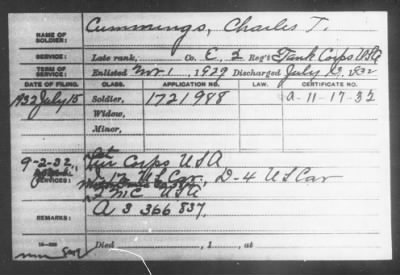 NAME OF SOLDIER: Cummings, Charles T.
SERVICE: Late rank, Co. E. 2 Reg't Tank Corps USA
TERM OF SERVICE: Enlisted Nov. 1, 1929 Discharged July 13, 1932
DATE OF FILING. CLASS. APPLICATION NO. LAW. CERTIFICATE NO.
1932 July 15 Soldier, 1721988 a-11-17-32
Widow,
Minor,
9-2-32, Air Corps USA
SERVICES: 12 US Cav., D-4 US Cav
QMC USA
REMARKS: A 3 366 837,
Died , 1 , at